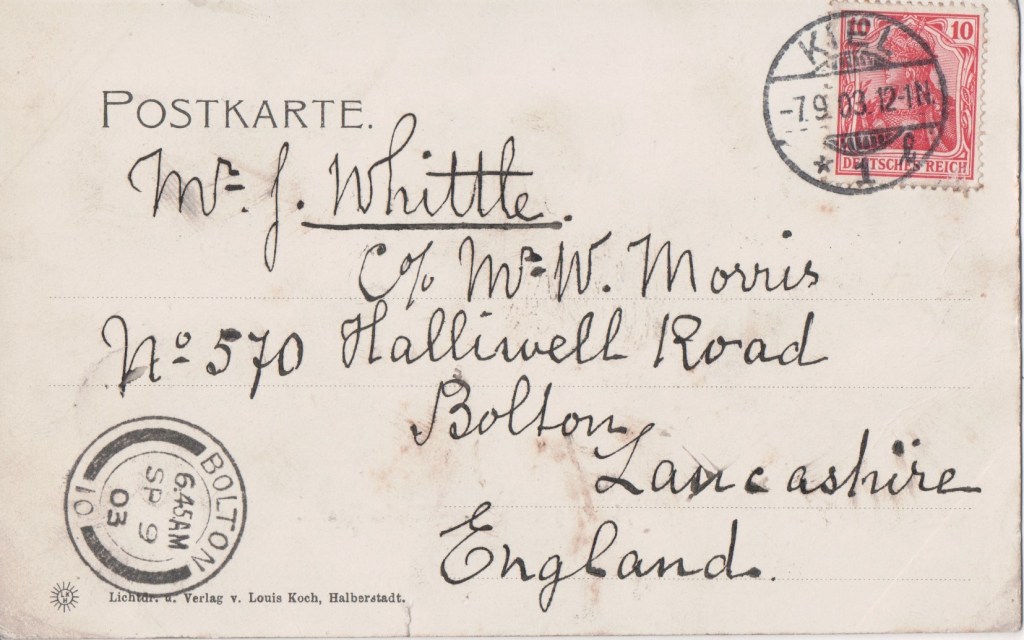 10 10
KIEL
-7.9.03.12-1N.
* 1 g
DEUTSCHES REICH
POSTKARTE.
Mr. J. Whittle.
C/o Mr. W. Morris
No. 570 Halliwell Road
Bolton
Lancashire
England.
BOLTON
6.45AM
SP 9
03
10
Lichtdr. u. Verlag v. Louis Koch, Halberstadt.